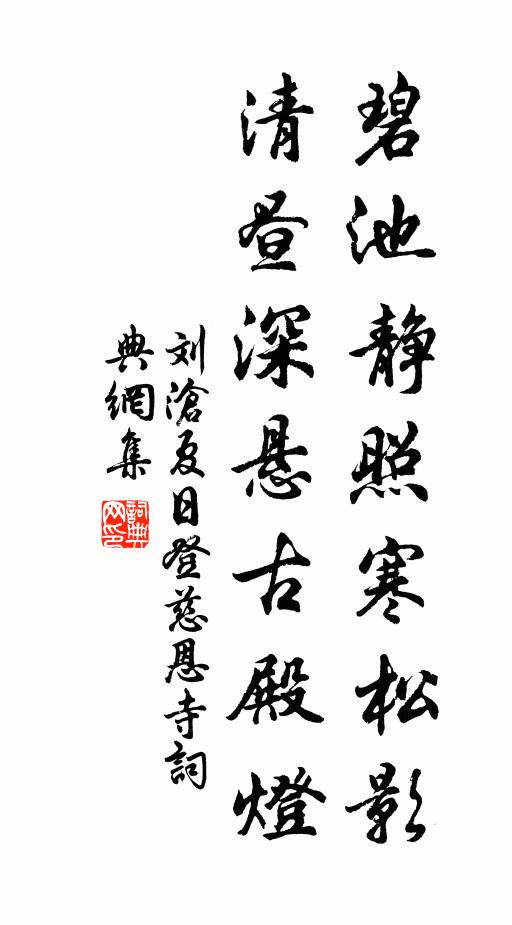 碧池静照寒松影
清昼深悬古殿燈
刘滄夏日登慈恩寺詞
典網集
詞典
网印